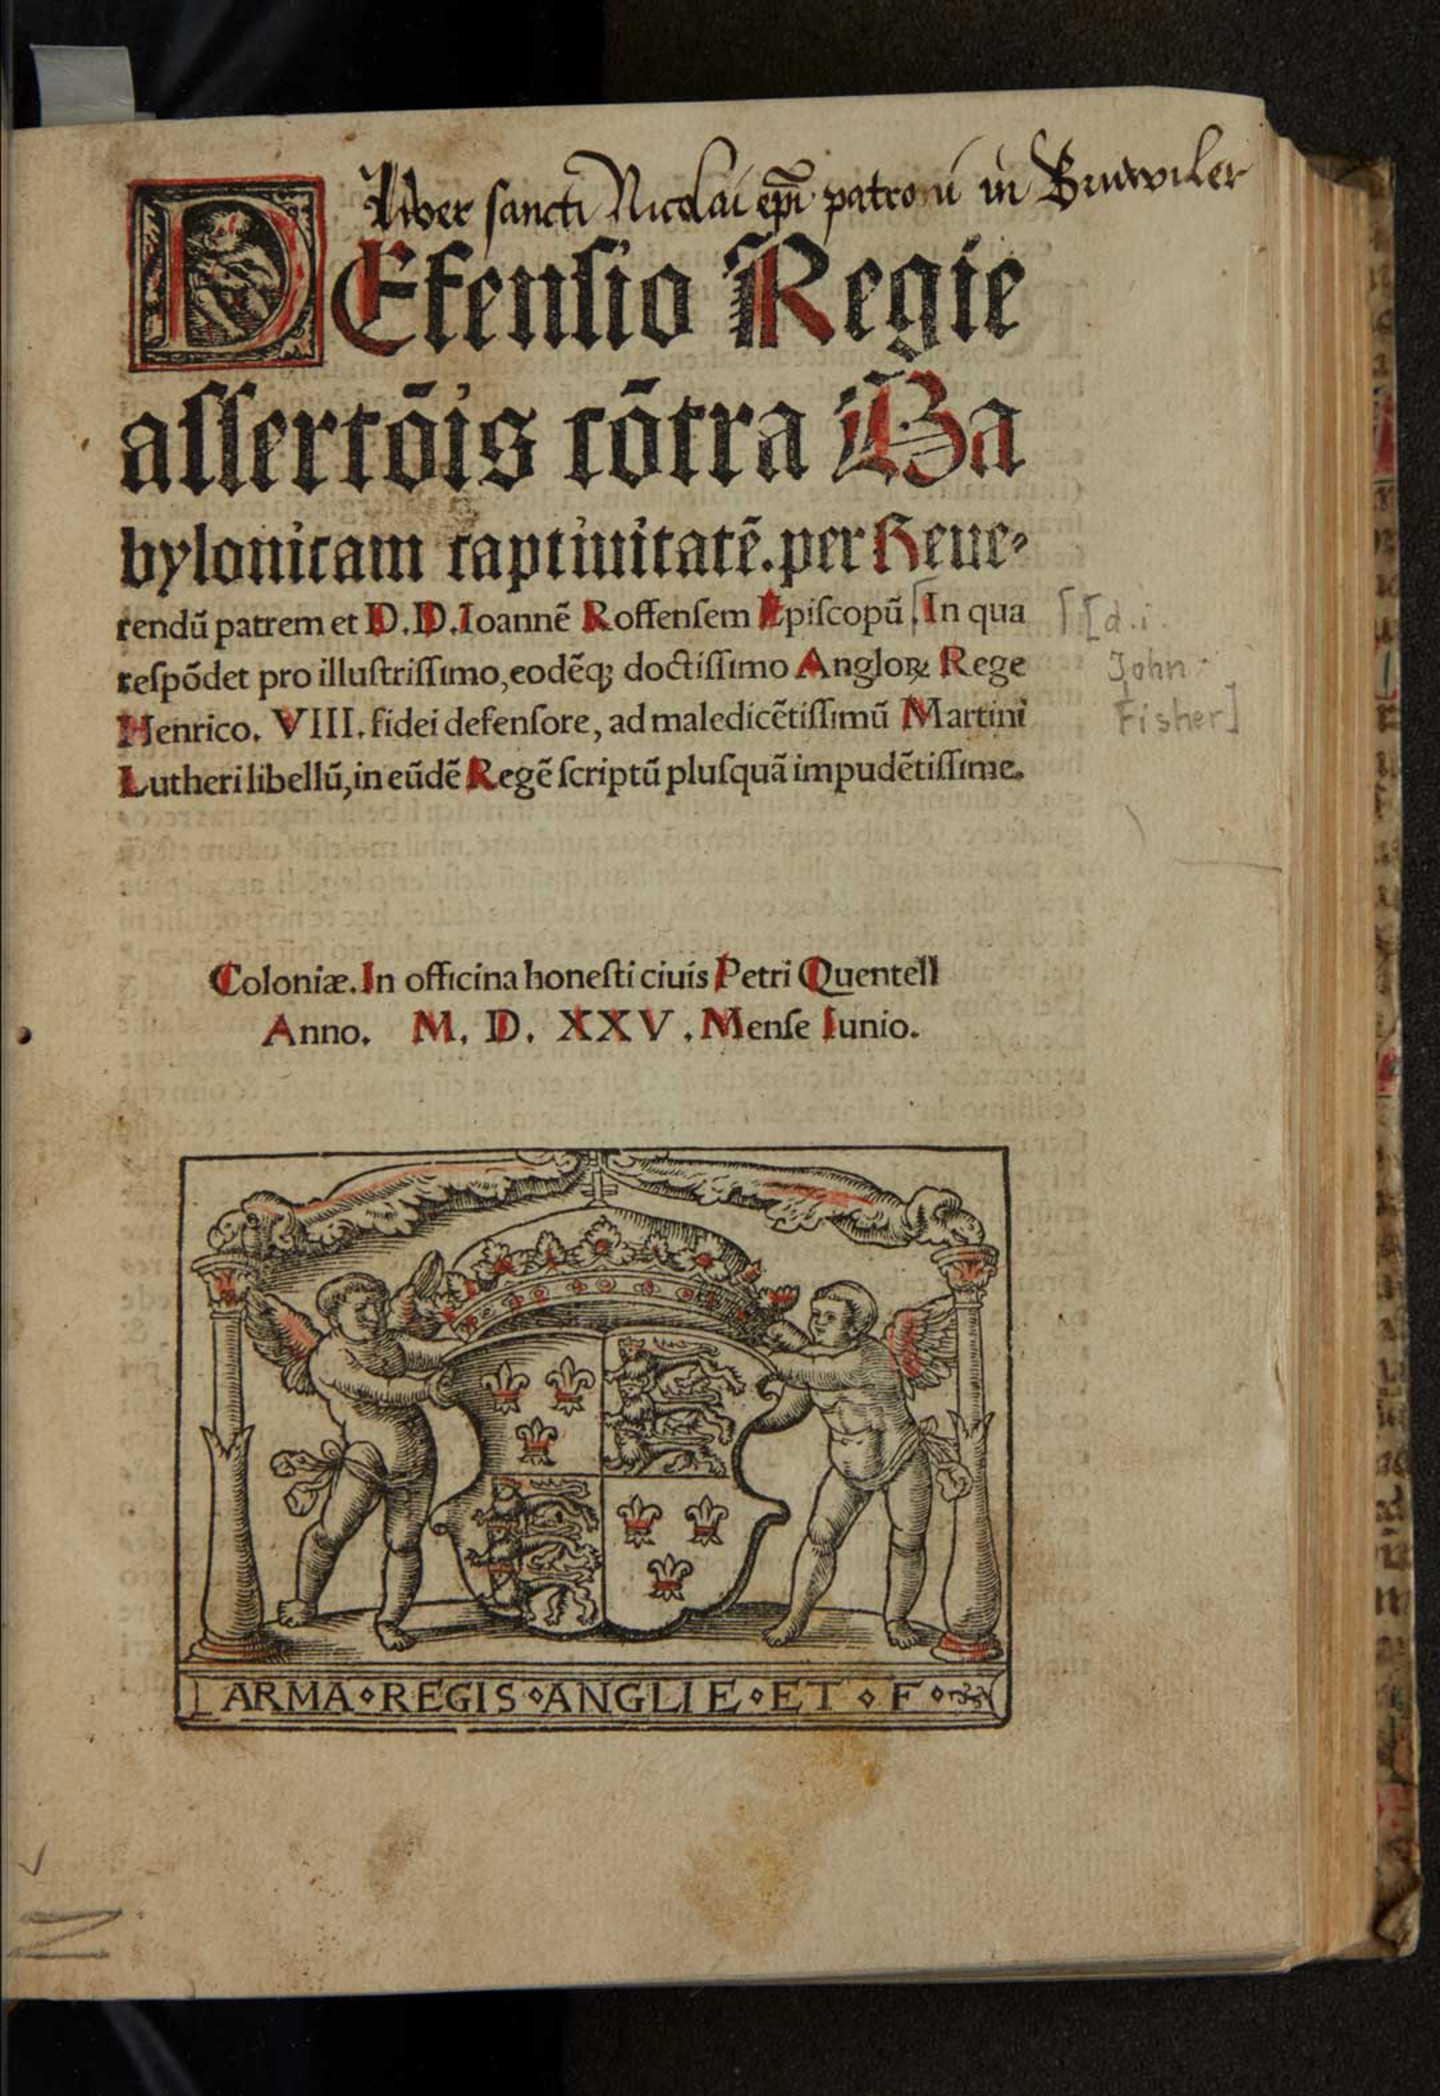 Liber sancti Nicolai ep̃i patroni in Bruwiler
DEfensio Regie
assertōis cōtra Ba
bylonicam captiuitatē. per Reue-
rendū patrem et D.D.Ioannē Roffensem Episcopū [In qua
respōdet pro illustrissimo, eodēq; doctissimo Angloꝝ Rege
Henrico. VIII. fidei defensore, ad maledicētissimū Martini
Lutheri libellū, in eūdē Regē scriptū plusquā impudētissime.
[[d.i.
John
Fisher]
Coloniæ. In officina honesti ciuis Petri Quentell
Anno. M. D. XXV. Mense Iunio.
ARMA⋄REGIS⋄ANGLIE⋄ET⋄F⋄
N